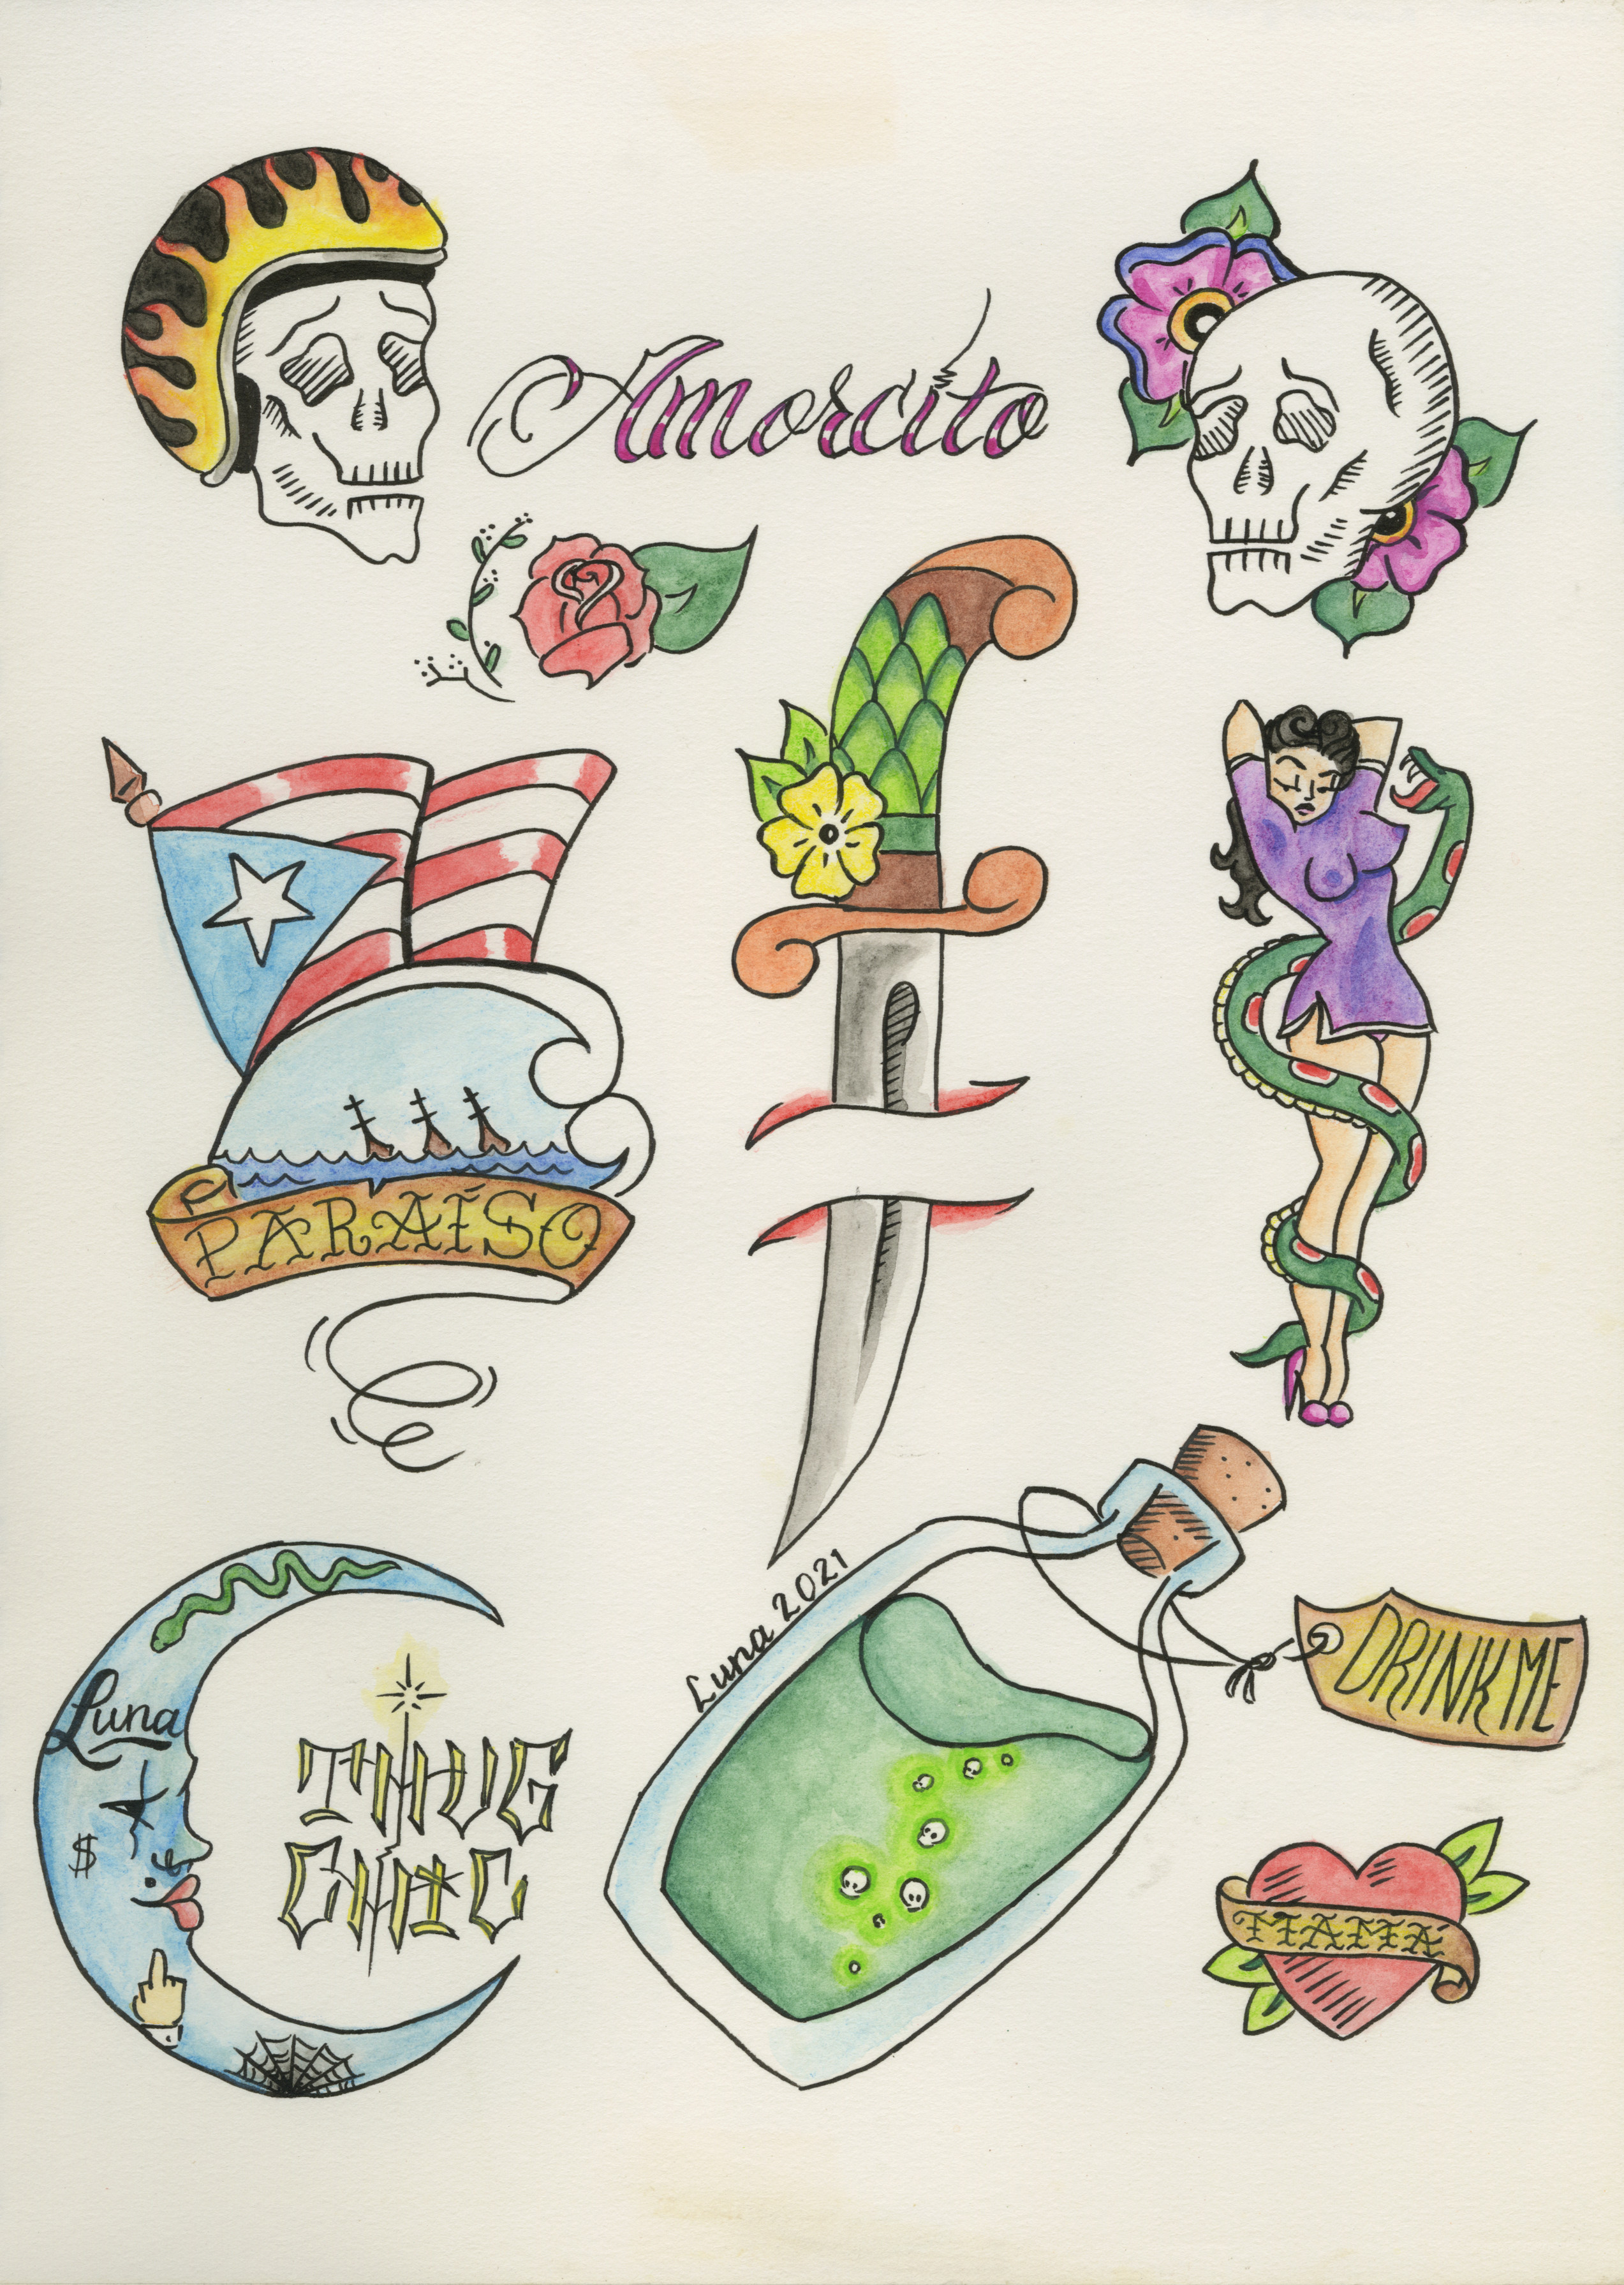 Amorcito
PARAÍSO
Luna 2021
DRINK ME
Luna
$
THUG
CHIC
MAMÁ